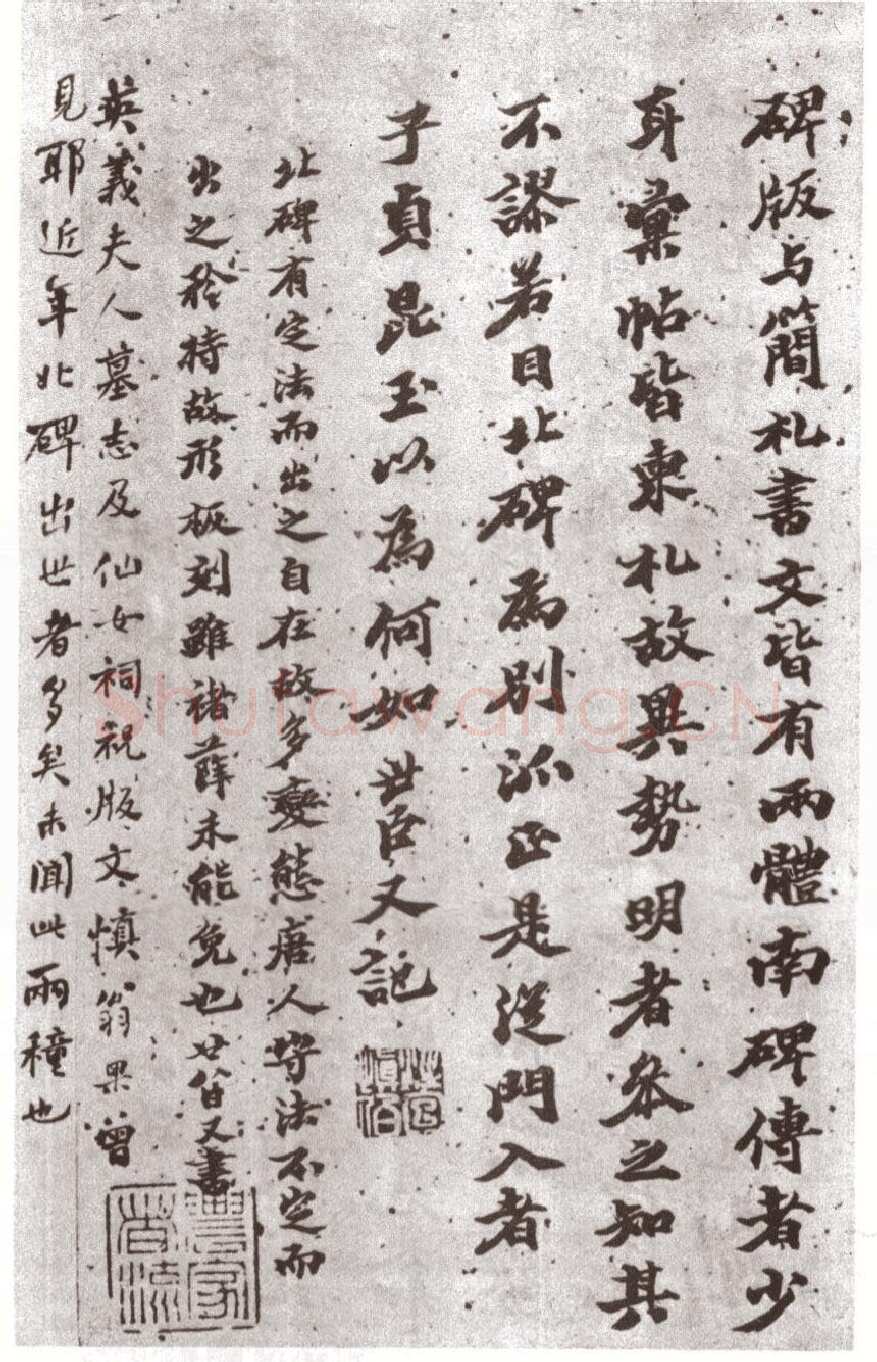 碑版与簡札書文皆有兩體南碑傳者少
耳彙帖皆柬札故具勢明者叅之知其
不謬若目北碑為别派正是從門入者
子貞昆玉以為何如世臣又記
北碑有定法而出之自在故多變態唐人守法不定而
出之矜持故形板刻雖褚薛未能免也廿八日又書
英義夫人墓志及仙女祠祝版文慎翁果曾
見耶近年北碑出世者多矣未聞此兩種也
shufawang.CN